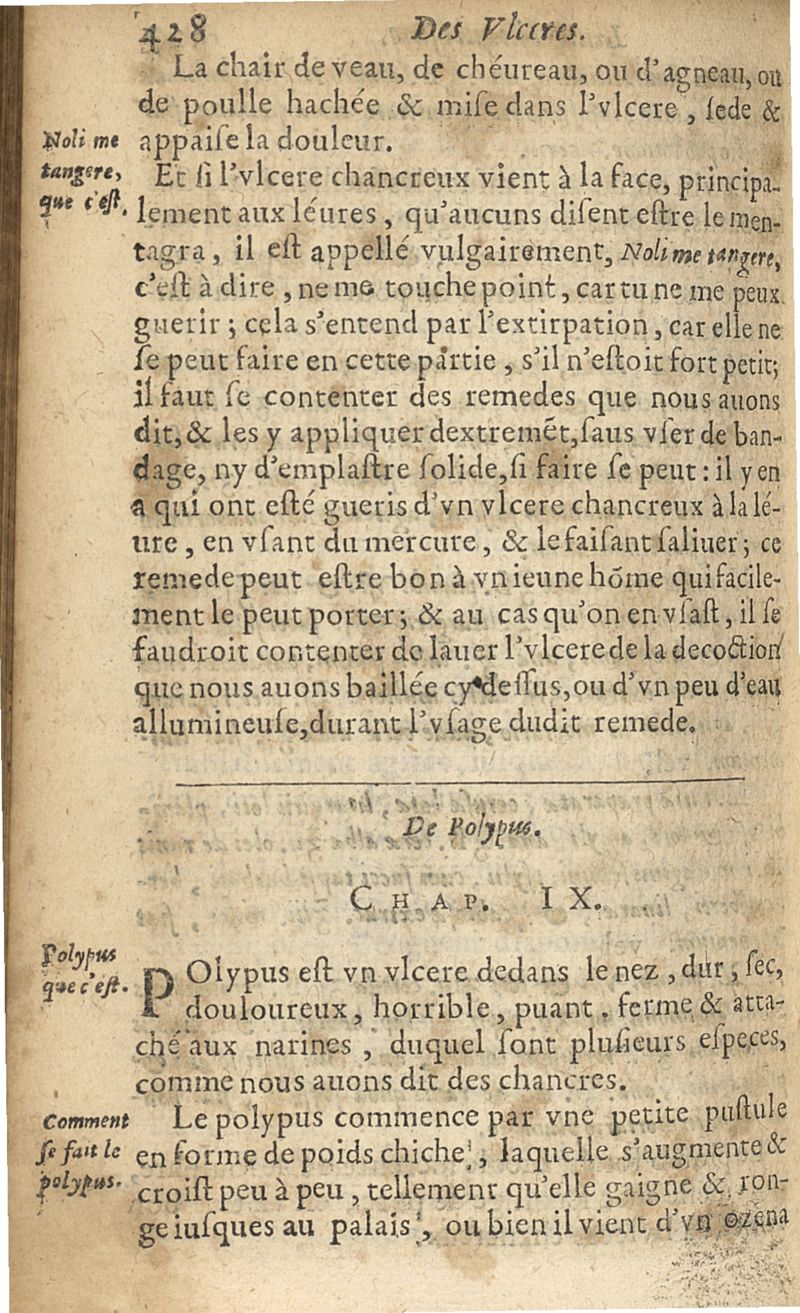 428 Des Vlceres.
La chair de veau, de chéureau, ou d'agneau, ou
de poulle hachée & miſe dans l'vlcere, ſede &
appaiſe la douleur.
Noli me
tangere,
que c'eſt.
Et ſi l'vlcere chancreux vient à la face, principa-
lement aux léures, qu'aucuns diſent eſtre le men-
tagra, il eſt appellé vulgairement, Noli me tangere,
c'eſt à dire, ne me touche point, car tu ne me peux
guerir; cela s'entend par l'extirpation, car elle ne
ſe peut faire en cette partie, s'il n'eſtoit fort petit;
il faut ſe contenter des remedes que nous auons
dit, & les y appliquer dextremẽt, ſaus vſer de ban-
dage, ny d'emplaſtre ſolide, ſi faire ſe peut: il y en
a qui ont eſté gueris d'vn vlcere chancreux à la lé-
ure, en vſant du mercure, & le faiſant ſaliuer; ce
remede peut eſtre bon à vn ieune hõme qui facile-
ment le peut porter; & au cas qu'on en vſaſt, il ſe
faudroit contenter de lauer l'vlcere de la decoction
que nous auons baillée cy deſſus, ou d'vn peu d'eau
allumineuſe, durant l'vſage dudit remede.
De Polypus.
CHAP. IX.
Polypus
que c'eſt.
POlypus eſt vn vlcere dedans le nez, dur, ſec,
douloureux, horrible, puant, ferme & atta-
ché aux narines, duquel ſont pluſieurs eſpeces,
comme nous auons dit des chancres.
Comment
ſe fait le
polypus.
Le polypus commence par vne petite puſtule
en forme de poids chiche, laquelle s'augmente &
croiſt peu à peu, tellement qu'elle gaigne & ron-
ge iuſques au palais, ou bien il vient d'vn ozena